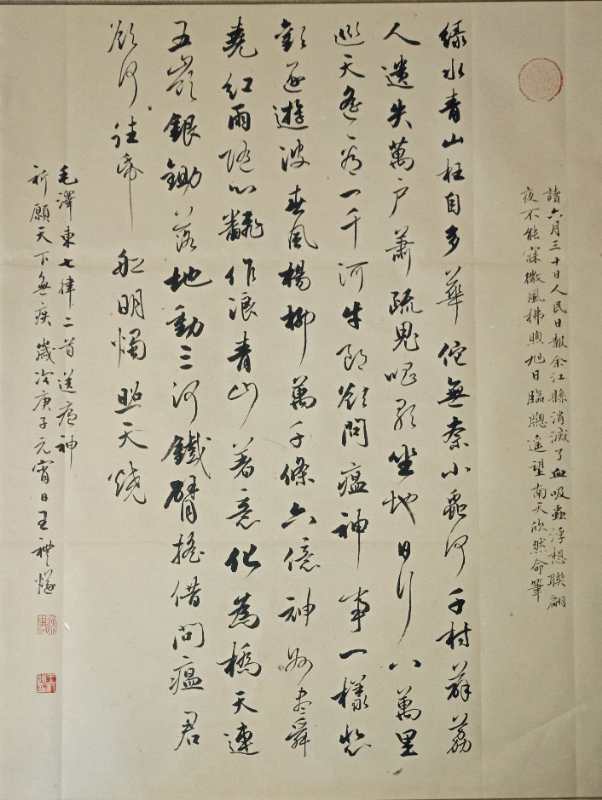 讀六月三十日人民日報余江縣消滅了血吸虫浮想聯翩
夜不能寐微風拂煦旭日臨窗遙望南天欣然命筆
綠水青山枉自多華佗無奈小蟲何千村薜荔
人遺失萬戶蕭疏鬼唱歌坐地日行八萬里
巡天遙看一千河牛郎欲問瘟神事一樣悲
歡逐逝波春風楊柳萬千條六億神州盡舜
堯紅雨隨心翻作浪青山著意化為橋天連
五嶺銀鋤落地動三河鐵臂搖借問瘟君
欲何往帋船明燭照天燒
毛澤東七律二首送瘟神
祈願天下無疾歲次庚子元宵日王